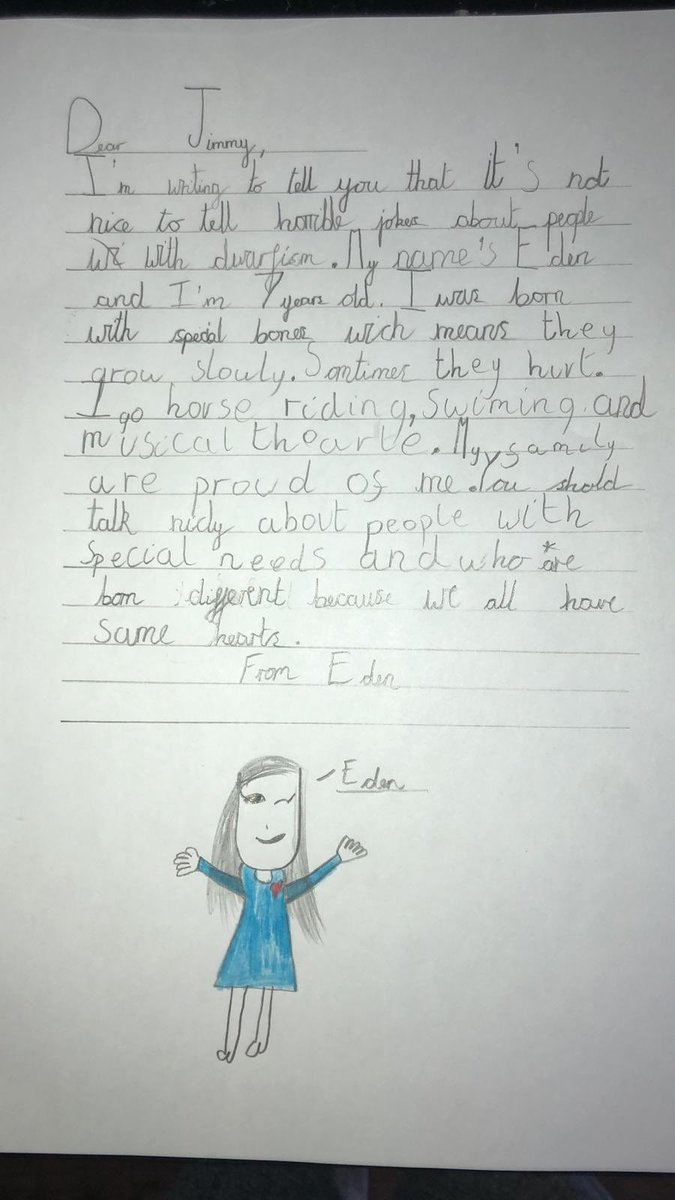 Dear Jimmy,
I'm writing to tell you that it's not
nice to tell horrible jokes about people
with dwarfism. My name's Eden
and I'm 9 years old. I was born
with special bones wich means they
grow slowly. Somtimes they hurt.
I go horse riding, swiming and
musical thearte. My family
are proud of me. You shold
talk nicly about people with
special needs and who are
born different because we all have
same hearts.
From Eden
Eden